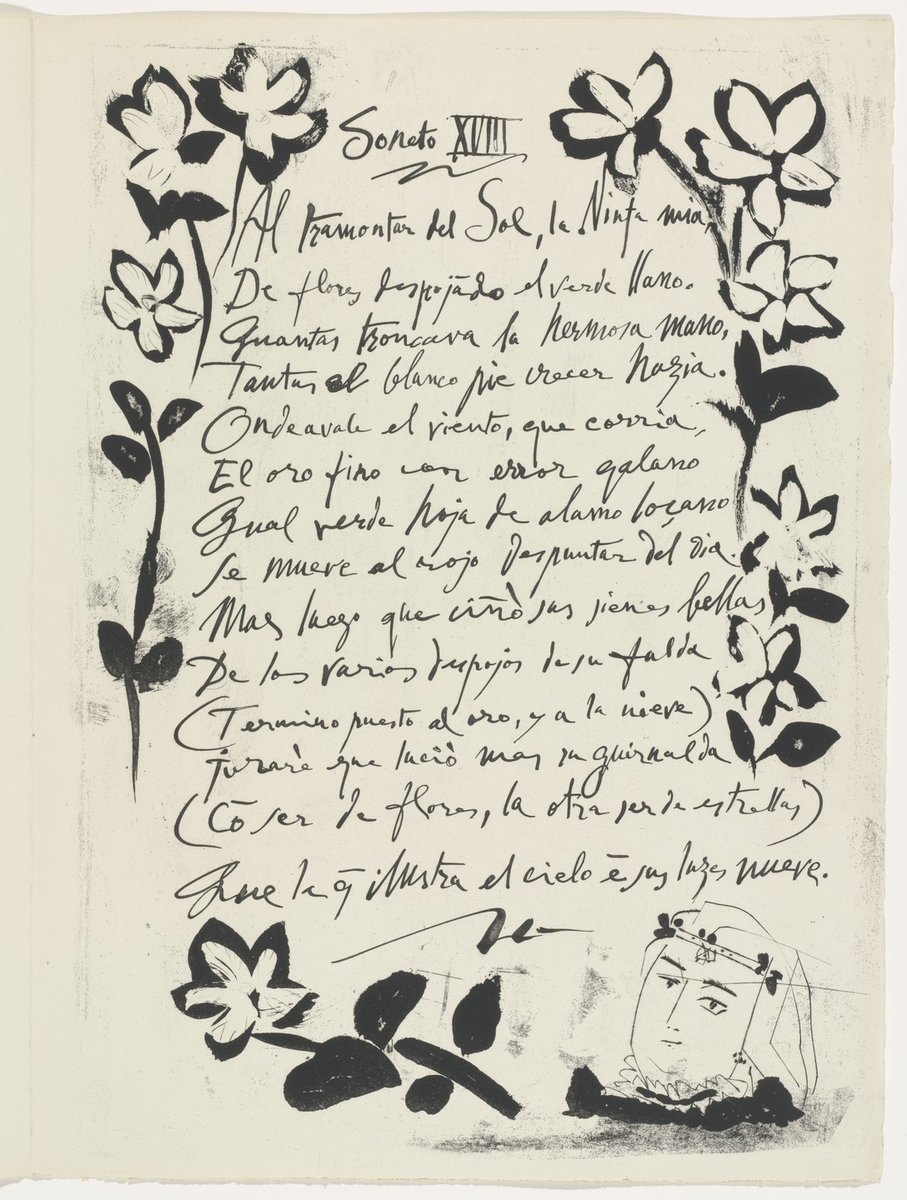 Soneto XVIII
Al tramontar del Sol, la Ninfa mia,
De flores despojādo el verde llano.
Quantas troncava la hermosa mano,
Tantas el blanco pie crecer hazia.
Ondeavale el viento, que corria,
El oro fino con error galano
Qual verde hoja de alamo loçano
Se mueve al rojo despuntar del dia.
Mas luego que ciñò sus sienes bellas
De los varios despojos de su falda
(Termino puesto al oro, y a la nieve)
jurarè que luciò mas su guirnalda
(Cō ser de flores, la otra ser de estrellas)
Que la q̄ illustra el cielo ē sus luzes nueve.